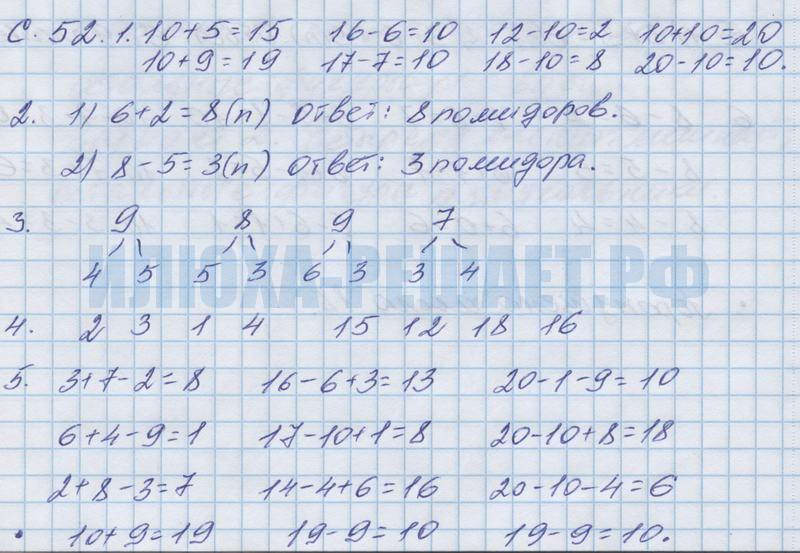 С. 52. 1. 10+5=15 16-6=10 12-10=2 10+10=20
10+9=19 17-7=10 18-10=8 20-10=10.
2. 1) 6+2=8(п) Ответ: 8 помидоров.
2) 8-5=3(п) Ответ: 3 помидора.
3. 9 8 9 7
4 5 5 3 6 3 3 4
ИЛЮХА-РЕШАЕТ.РФ
4. 2 3 1 4 15 12 18 16
5. 3+7-2=8 16-6+3=13 20-1-9=10
6+4-9=1 17-10+1=8 20-10+8=18
2+8-3=7 14-4+6=16 20-10-4=6
• 10+9=19 19-9=10 19-9=10.